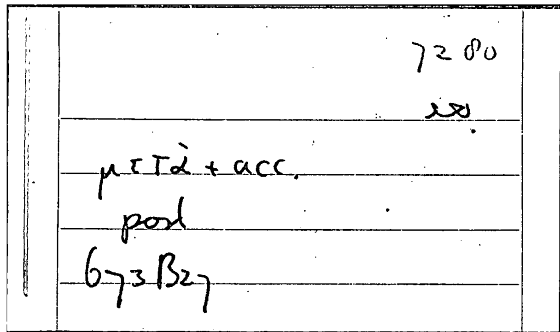 7280
μετὰ + acc.
post
673B27